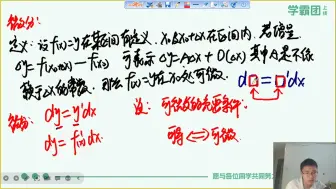 学霸团
微分:
定义: 设f(x)=y在某区间有定义, x₀及x₀+Δx在区间内, 若增量
Δy=f(x₀+Δx)-f(x₀) 可表示 Δy=AΔx+O(Δx) 其中A是不依
赖于Δx的常数, 那么f(x)=y在x₀处可微.
d□=□'dx
dy=y'dx
dy=f'(x)dx
注: 可微的充要条件.
可导⇔可微
愿与各位同学共同努力